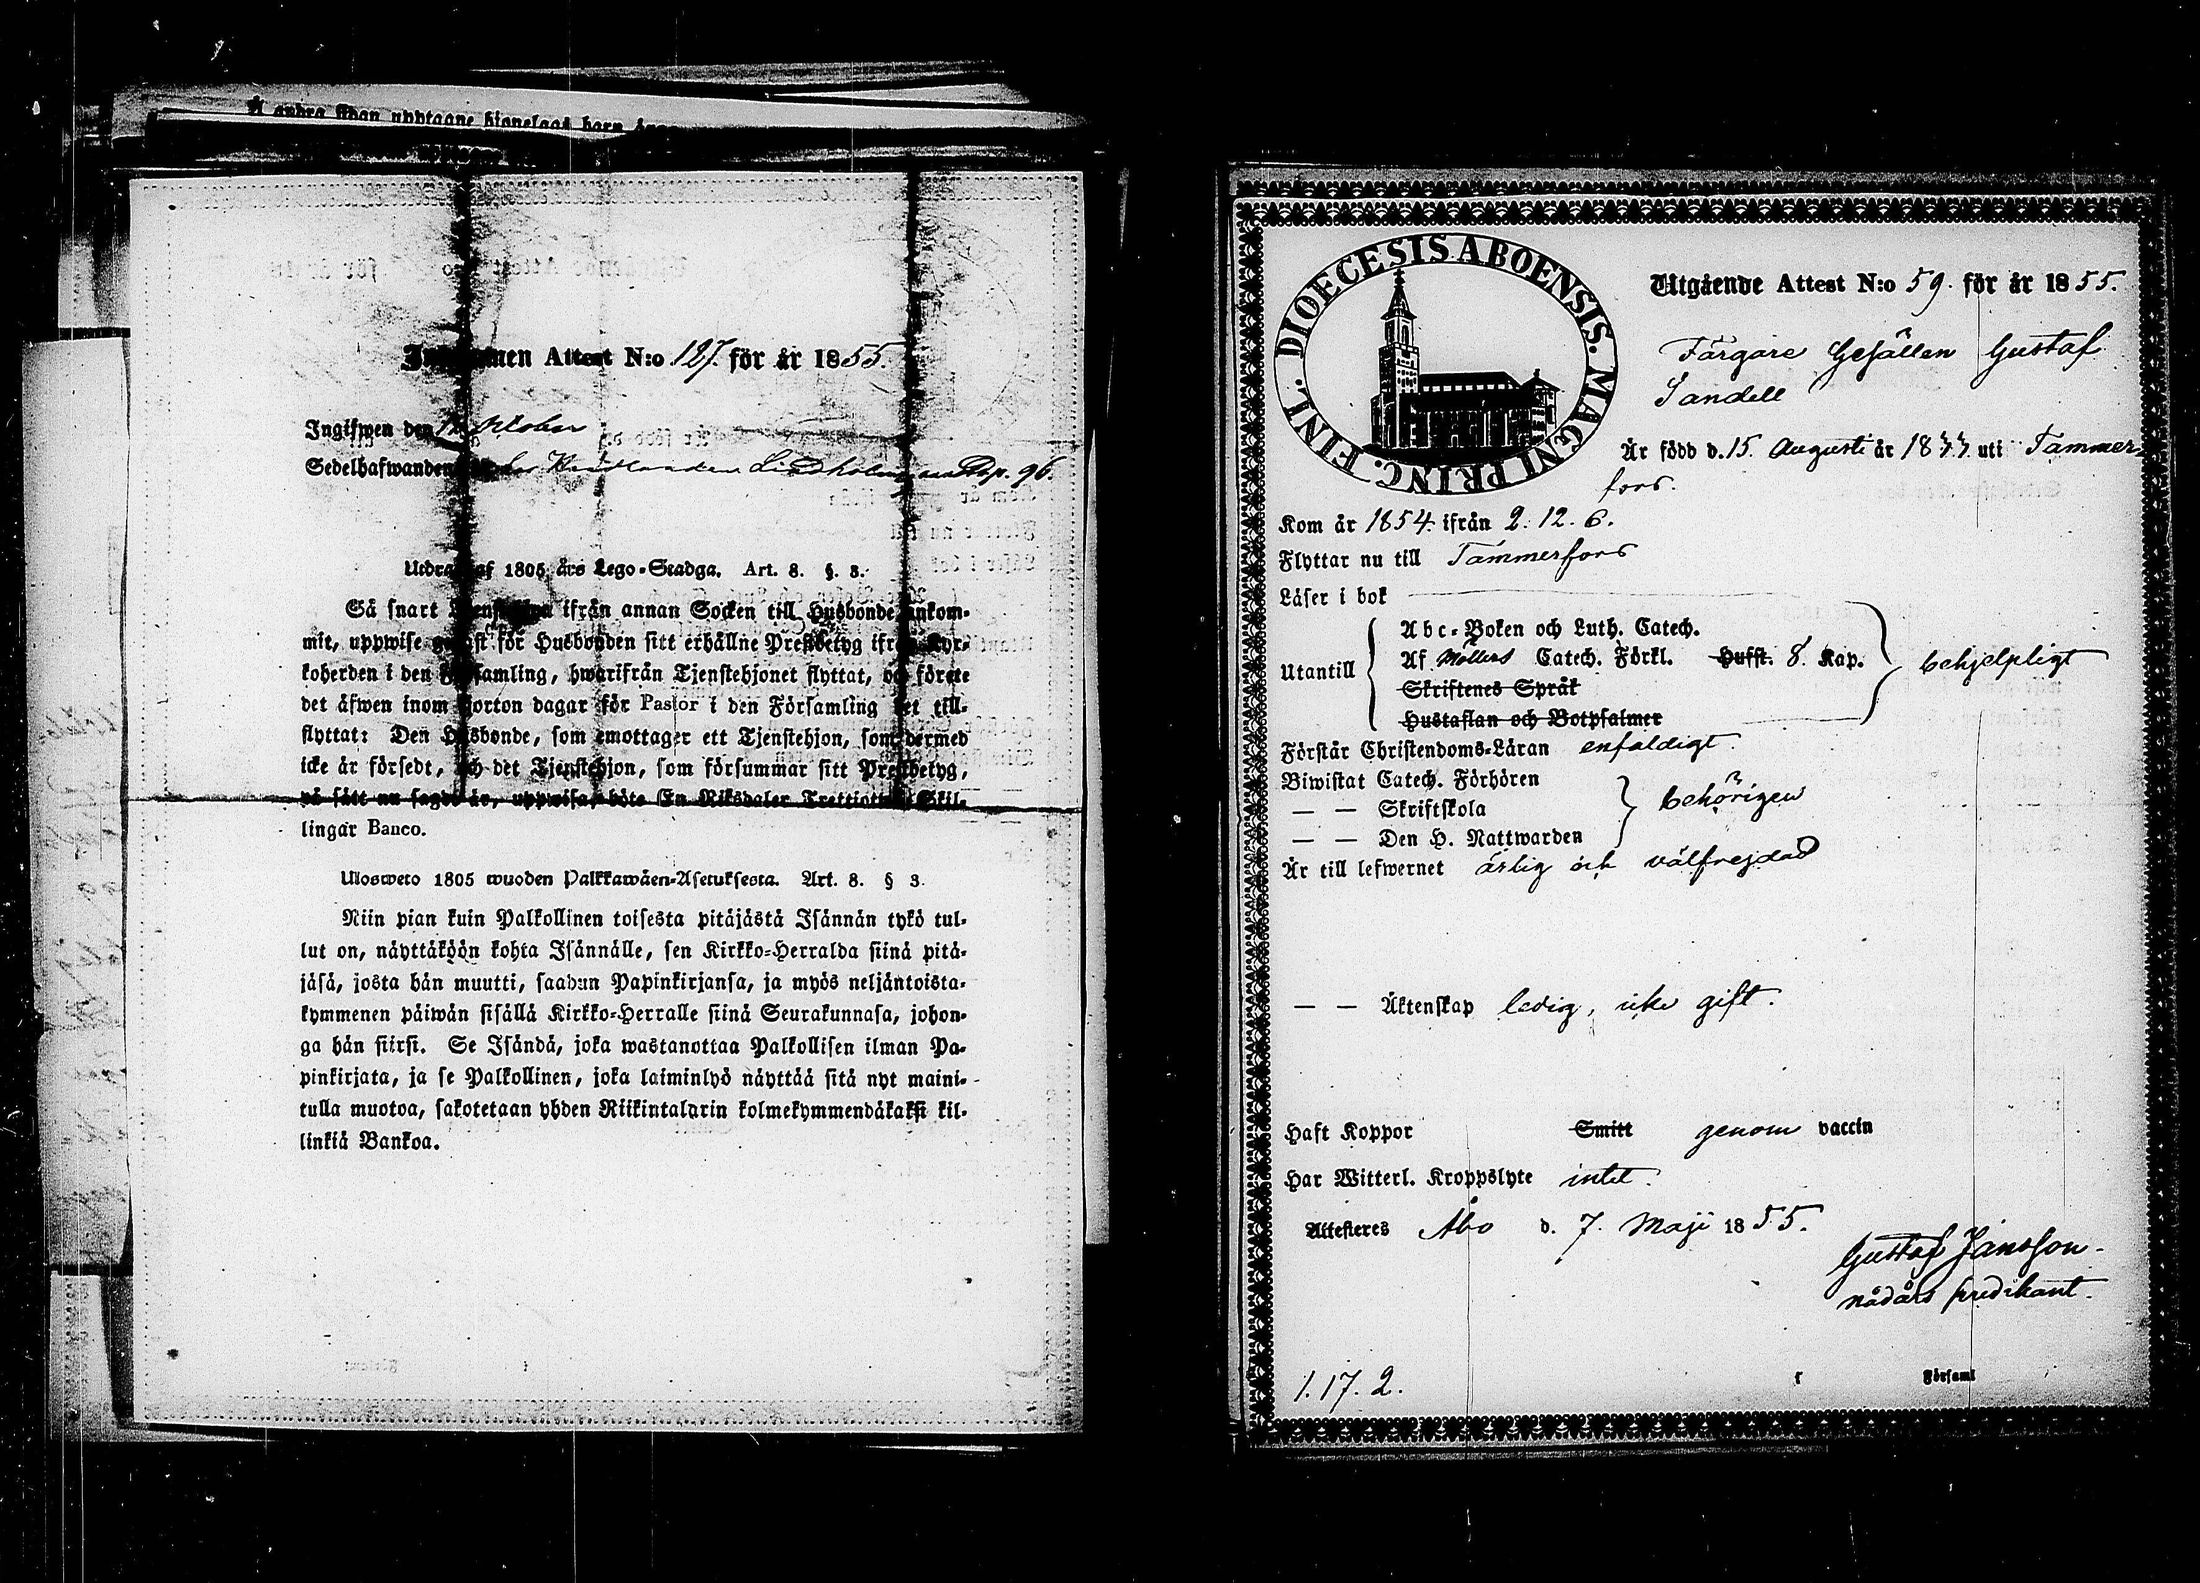 Å andra sidan upptagne hjonelags barn
Inkommen Attest N:o 127. för år 1855.
Ingifwen den 12 October
Sedelhafwanden Lindholm Pag. 96.
Utdrag af 1805 års Lego-Stadga. Art. 8. §. 3.
Så snart Tjenstehjon ifrån annan Socken till Husbonde ankom-
mit, uppwise genast för Husbonden sitt erhållne Prestbetyg ifrån Kyr-
koherden i den Församling, hwarifrån Tjenstehjonet flyttat, och förete
det äfwen inom fjorton dagar för Pastor i den Församling det till-
flyttat: Den Husbonde, som emottager ett Tjenstehjon, som dermed
icke är försedt, och det Tjenstehjon, som försummar sitt Prestbetyg,
på sätt nu sagdt är, uppwisa, böte En Riksdaler Trettiotwå Skil-
lingar Banco.
Ulosweto 1805 wuoden Palkkawäen-Asetuksesta. Art. 8. § 3.
Niin pian kuin Palkollinen toisesta pitäjästä Isännän tykö tul-
lut on, näyttäköön kohta Isännälle, sen Kirkko-Herralda siinä pitä-
jäsä, josta hän muutti, saadun Papinkirjansa, ja myös neljäntoista-
kymmenen päiwän sisällä Kirkko-Herralle siinä Seurakunnasa, johon-
ga hän siirsi. Se Isändä, joka wastanottaa Palkollisen ilman Pa-
pinkirjata, ja se Palkollinen, joka laiminlyö näyttää sitä nyt maini-
tulla muotoa, sakotetaan yhden Riikintalarin kolmekymmendäkaksi kil-
linkiä Bankoa.
DIOECESIS ABOENSIS. MAGNI PRINC. FINL.
Utgående Attest N:o 59. för år 1855.
Färgare Gesällen Gustaf
Sandell
Är född d. 15. Augusti år 1833 uti Tammer-
fors.
Kom år 1854. ifrån 2. 12. 6.
Flyttar nu till Tammerfors
Läser i bok
Utantill
Abc-Boken och Luth. Catech.
Af Möllers Catech. Förkl. Hufst. 8. Kap.
Skriftenes Språk
Hustaflan och Botpsalmer
behjelpligt
Förstår Christendoms-Läran enfaldigt.
Biwistat Catech. Förhören
— — Skriftskola
— — Den H. Nattwarden
behörigen
Är till lefwernet ärlig och välfrejdad
— — Äktenskap ledig, icke gift.
Haft Koppor Smitt genom vaccin
Har Witterl. Kroppslyte intet.
Attesteres Åbo d. 7. Maji 1855.
Gustaf Jansson.
nådårs predikant.
1. 17. 2.
Församl